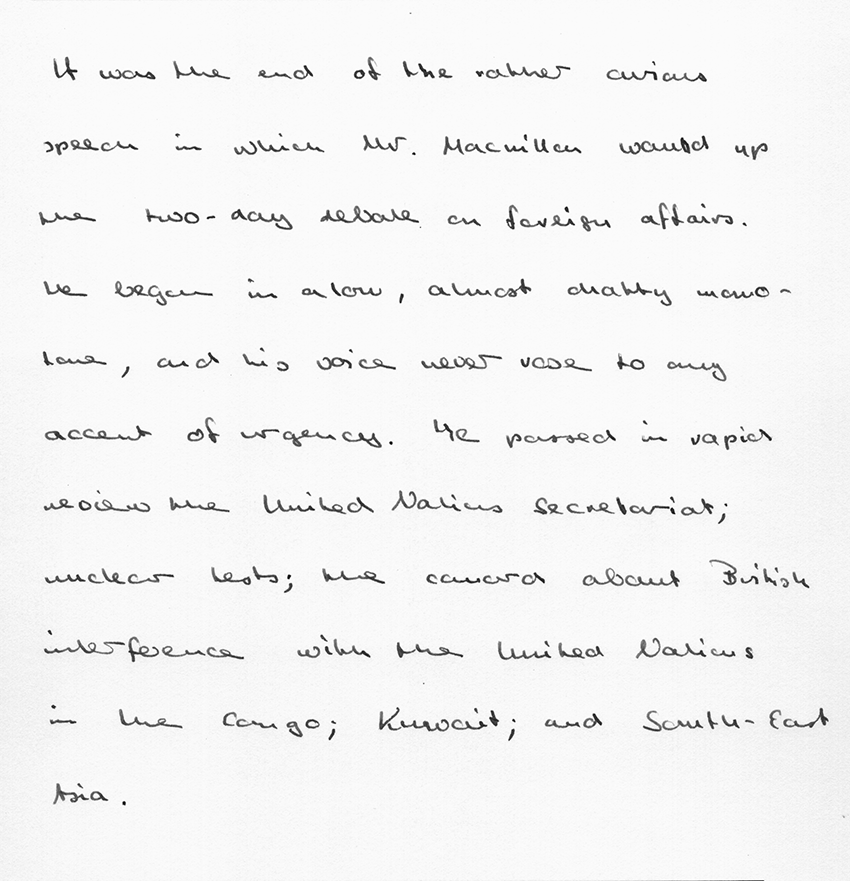 It was the end of the rather curious
speech in which Mr. Macmillan wound up
the two-day debate on foreign affairs.
He began in a low, almost chatty mono-
tone, and his voice never rose to any
accent of urgency. He passed in rapid
review the United Nations Secretariat;
nuclear tests; the canard about British
interference with the United Nations
in the Congo; Kuwait; and South-East
Asia.